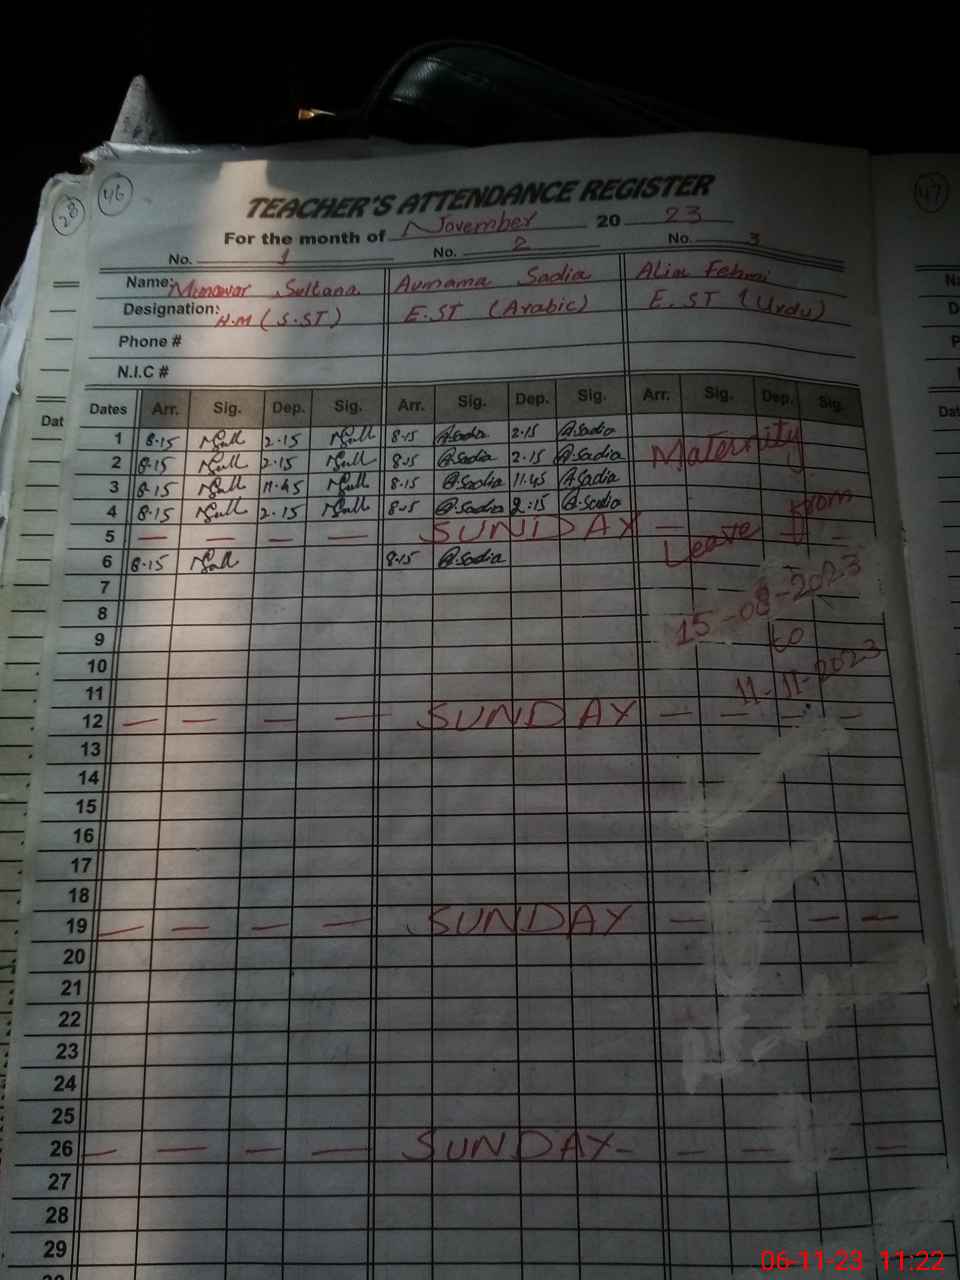 28
46
47
TEACHER'S ATTENDANCE REGISTER
For the month of November 2023
No. 1 No. 2 No. 3
Name: Munawar Sultana Aumama Sadia Alia Fehmi
Designation: H.M (S.ST) E.ST (Arabic) E.ST (Urdu)
Phone #
N.I.C #
Dates Arr. Sig. Dep. Sig. Arr. Sig. Dep. Sig. Arr. Sig. Dep. Sig.
Dat
1 8.15 2.15 8.15 Sadia 2.15 Sadia Maternity
2 8.15 2.15 8.15 Sadia 2.15 Sadia
3 8.15 11.45 8.15 Sadia 11.45 Sadia
4 8.15 2.15 8.15 Sadia 2.15 Sadia Leave from
5 — — — — SUNDAY — — —
6 8.15 8.15 Sadia
7
8 15-08-2023
9 to
10
11 11-11-2023
12 — — — — SUNDAY — — — —
13
14
15
16
17
18
19 — — — — SUNDAY — — — —
20
21
22
23
24
25
26 — — — — SUNDAY — — — — —
27
28
29
06-11-23 11:22